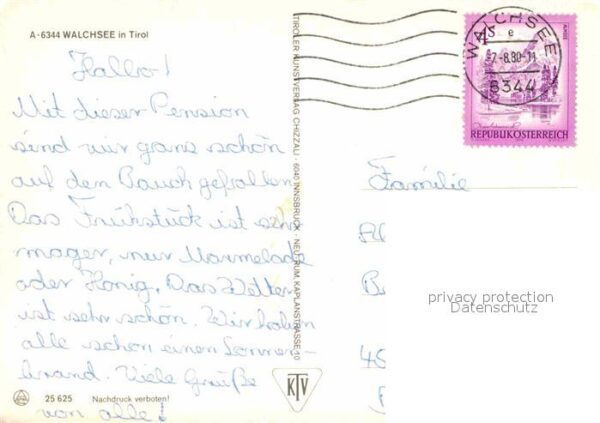 A-6344 WALCHSEE in Tirol
Hallo!
Mit dieser Pension
sind wir ganz schön
auf den Bauch gefallen
Das Frühstück ist sehr
mager, nur Marmelade
oder Honig. Das Wetter
ist sehr schön. Wir haben
alle schon einen Sonnen-
brand. Viele Grüße
von alle!
25 625 Nachdruck verboten!
TIROLER KUNSTVERLAG CHIZZALI · 6040 INNSBRUCK - NEU-RUM, KAPLANSTRASSE 10
KTV
WALCHSEE
e
-8.80-11
6344
REPUBLIK ÖSTERREICH
Familie
privacy protection
Datenschutz